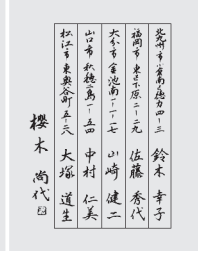 北九州市小倉南区徳力四-三 鈴木 幸子
福岡市東区下原二-二九 佐藤 秀代
大分市金池南一-一-七 山崎 健二
山口市秋穂二島一-五四 中村 仁美
松江市東奥谷町五-六 大塚 道生
櫻木 尚代